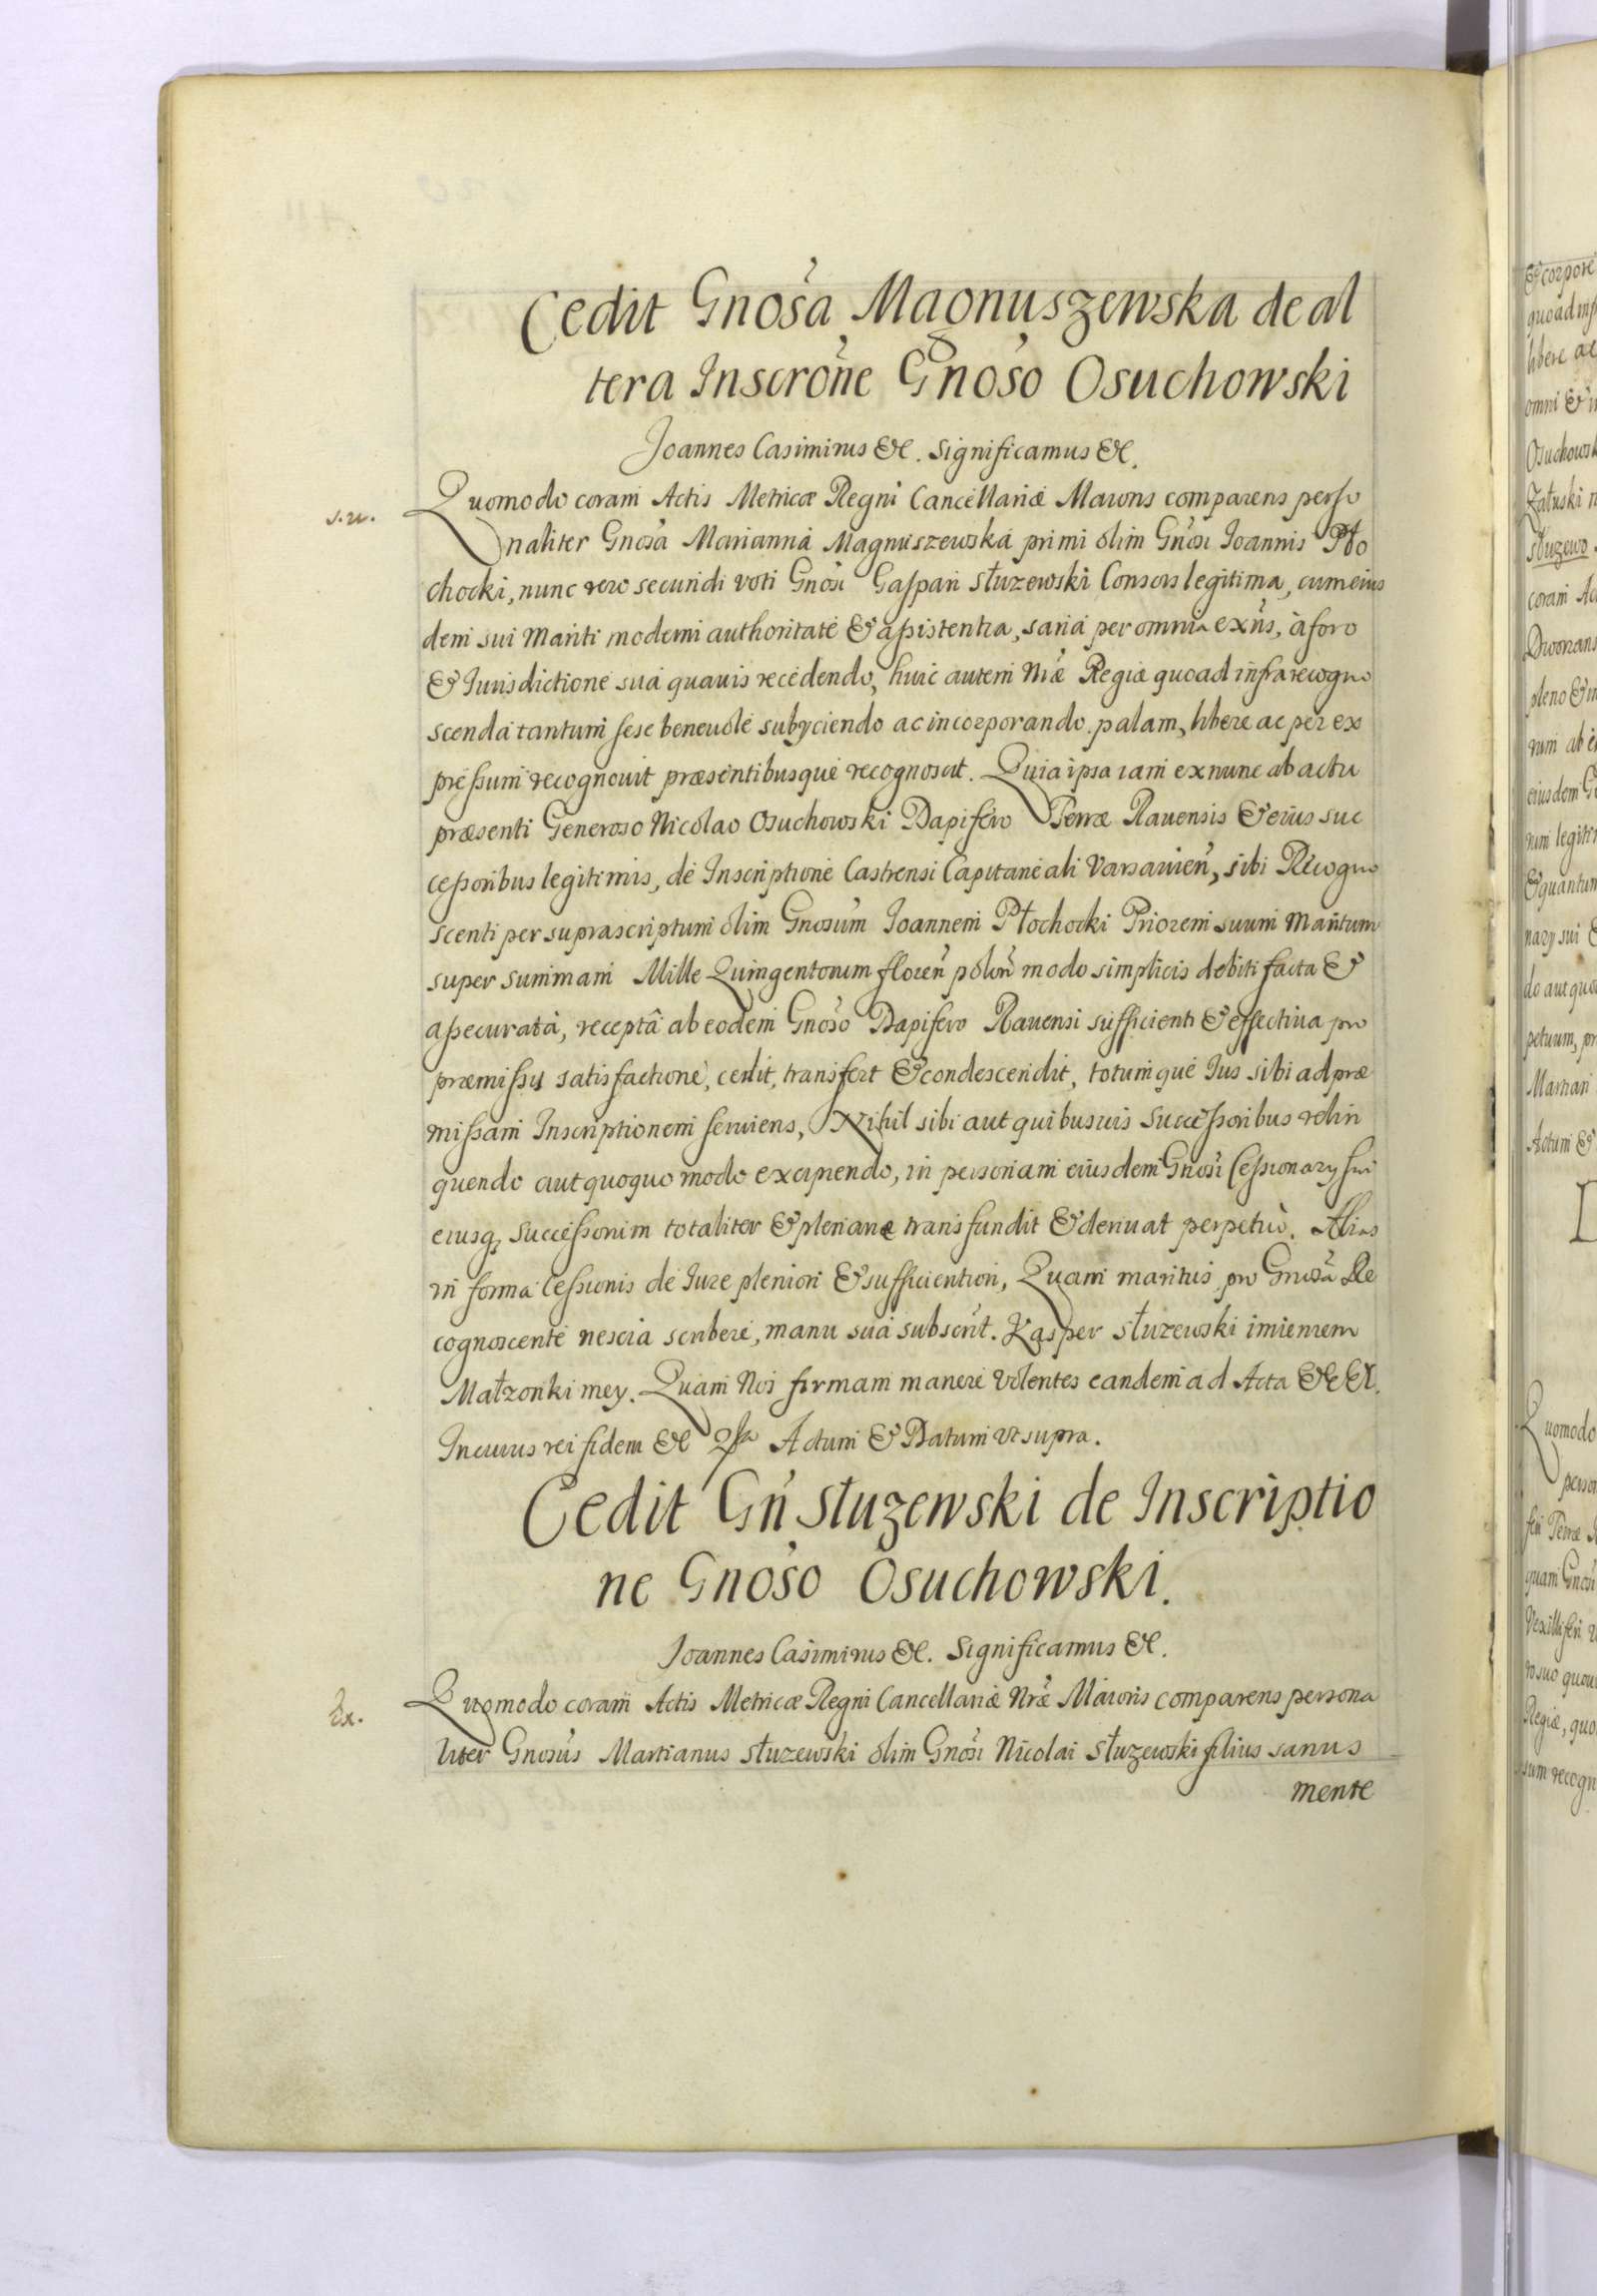 Cedit Gnosa Magnuszewska de al
tera Inscrone Gnoso Osuchowski
Joannes Casimirus &c. Significamus &c.
s.n.
Quomodo coram Actis Metricæ Regni Cancellariæ Maioris comparens perso
naliter Gnosa Marianna Magnuszewska primi olim Gnosi Ioannis Pło
chocki, nunc vero secundi voti Gnosi Gaspari Słuzewski Consors legitima, cum eius
dem sui Mariti moderni authoritate & assistentia, sana per omnia exñs, à foro
& Iurisdictione sua quavis recedendo, huic autem Nræ Regiæ quoad infra recogno
scenda tantum sese beneuole subyciendo ac incorporando. palam, libere ac per ex
pressum recognouit præsentibusque recognoscit. Quia ipsa iam ex nunc ab actu
præsenti Generoso Nicolao Osuchowski Dapifero Terræ Rauensis & eius suc
cessoribus legitimis, de Inscriptione Castrensi Capitaneali Varsauien, sibi Recogno
scenti per suprascriptum olim Gnosum Ioannem Płochocki Priorem suum Maritum
super summam Mille Quingentorum floren polon modo simplicis debiti facta &
assecurata, receptâ ab eodem Gnoso Dapifero Rauensi sufficienti & effectiua pro
præmissis satisfactione, cedit, transfert & condescendit, totumque Ius sibi ad præ
missam Inscriptionem seruiens, Nihil sibi aut quibusuis Successoribus relin
quendo aut quoquo modo excipiendo, in personam eiusdem Gnosi Cessionary sui
eiusq; successorum totaliter & plenariæ transfundit & deriuat perpetuò. Alias
in forma Cessionis de Iure pleniori & sufficientiori, Quam maritus pro Gnosa Re
cognoscente nescia scribere, manu sua subscrit. Kasper Słuzewski imieniem
Małzonki mey. Quam Nos firmam manere volentes eandem ad Acta &c &c.
In cuius rei fidem &c Actum & Datum vt supra.
Cedit Gn Słuzewski de Inscriptio
ne Gnoso Osuchowski.
Joannes Casimirus &c. Significamus &c.
Ex.
Quomodo coram Actis Metricæ Regni Cancellariæ Nræ Maioris comparens persona
liter Gnosus Martianus Słuzewski olim Gnosi Nicolai Słuzewski filius sanus
mente